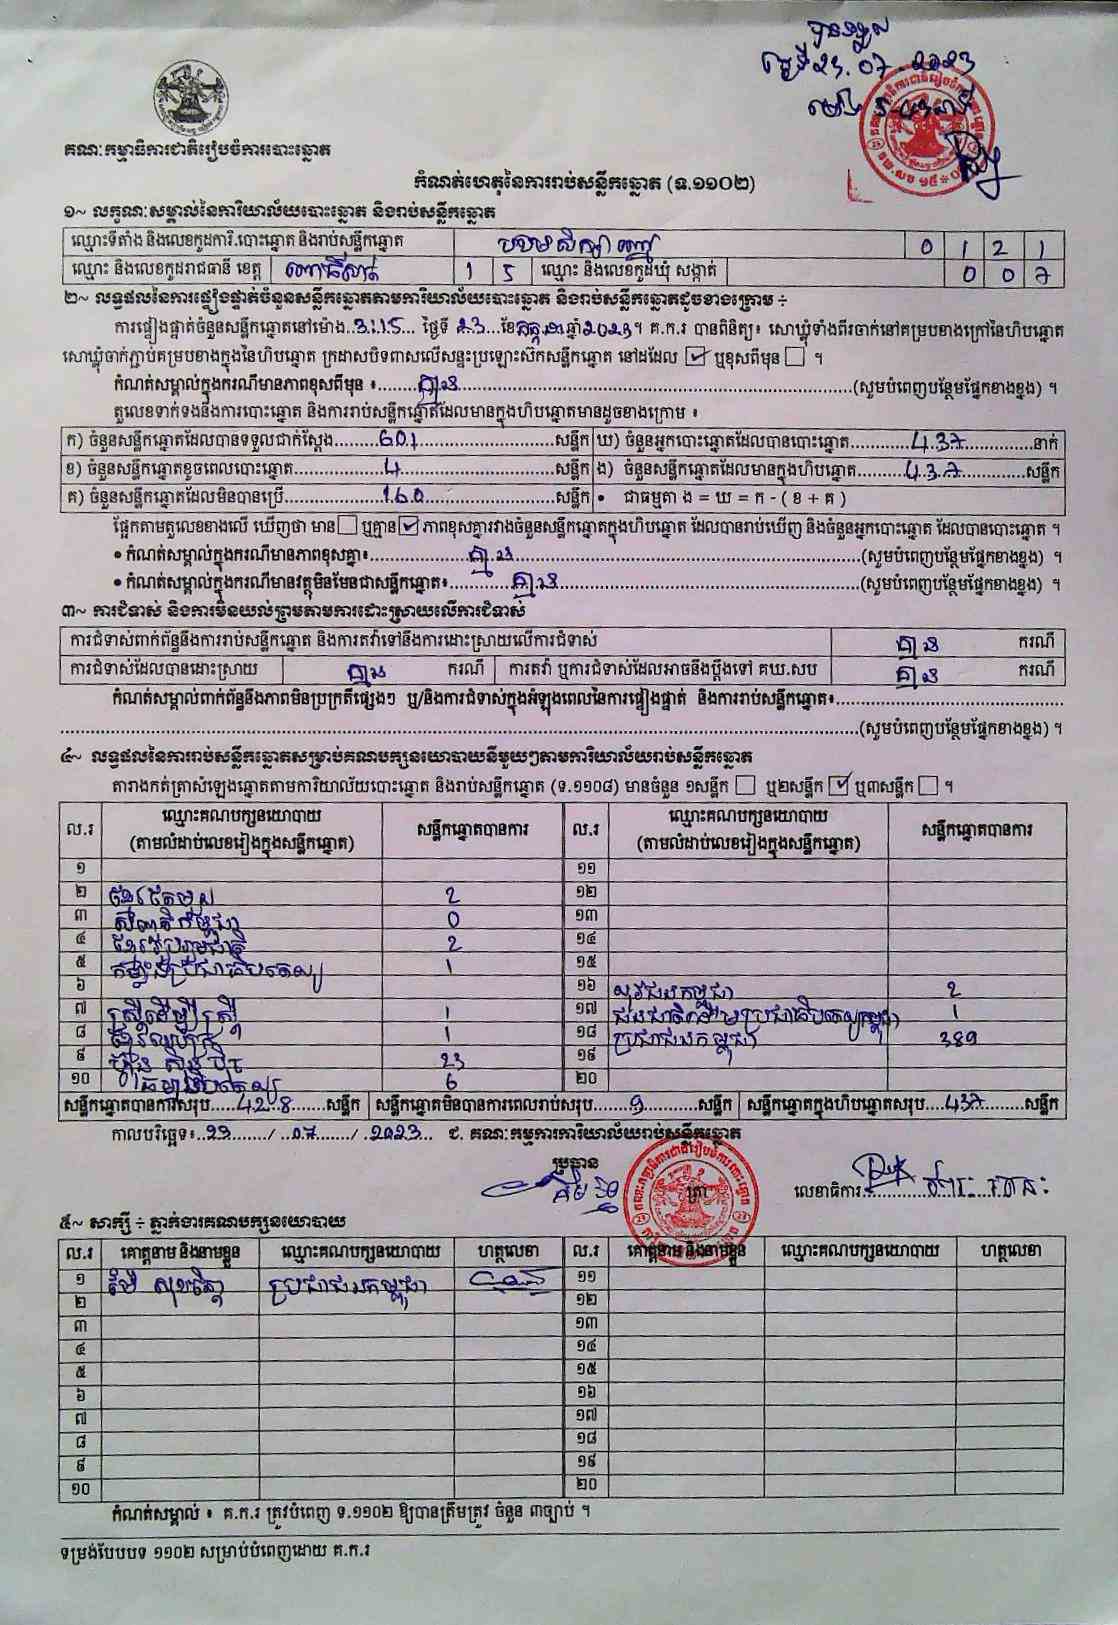 បានទទួល
ថ្ងៃទី 23.07.2023
គណៈកម្មាធិការជាតិរៀបចំការបោះឆ្នោត
កំណត់ហេតុនៃការរាប់សន្លឹកឆ្នោត (ទ.១១០២)
១~ លក្ខណៈសម្គាល់នៃការិយាល័យបោះឆ្នោត និងរាប់សន្លឹកឆ្នោត
ឈ្មោះទីតាំង និងលេខកូដការិ.បោះឆ្នោត និងរាប់សន្លឹកឆ្នោត 0 1 2 1
ឈ្មោះ និងលេខកូដរាជធានី ខេត្ត ពោធិ៍សាត់ 1 5 ឈ្មោះ និងលេខកូដឃុំ សង្កាត់ 0 0 7
២~ លទ្ធផលនៃការផ្ទៀងផ្ទាត់ចំនួនសន្លឹកឆ្នោតតាមការិយាល័យបោះឆ្នោត និងរាប់សន្លឹកឆ្នោតដូចខាងក្រោម ÷
ការផ្ទៀងផ្ទាត់ចំនួនសន្លឹកឆ្នោតនៅម៉ោង..3:15... ថ្ងៃទី 23 ខែ កក្កដា ឆ្នាំ 2023។ គ.ក.រ បានពិនិត្យ៖ សោឃ្លុំទាំងពីរចាក់នៅគម្របខាងក្រៅនៃហិបឆ្នោត
សោឃ្លុំចាក់ភ្ជាប់គម្របខាងក្នុងនៃហិបឆ្នោត ក្រដាសបិទពាសលើសន្ទះប្រឡោះស៊កសន្លឹកឆ្នោត នៅដដែល ☑ ឬខុសពីមុន ☐ ។
កំណត់សម្គាល់ក្នុងករណីមានភាពខុសពីមុន ៖.......គ្មាន.......(សូមបំពេញបន្ថែមផ្នែកខាងខ្នង) ។
តួលេខទាក់ទងនឹងការបោះឆ្នោត និងការរាប់សន្លឹកឆ្នោតដែលមានក្នុងហិបឆ្នោតមានដូចខាងក្រោម ៖
ក) ចំនួនសន្លឹកឆ្នោតដែលបានទទួលជាក់ស្តែង........601........សន្លឹក ឃ) ចំនួនអ្នកបោះឆ្នោតដែលបានបោះឆ្នោត........437........នាក់
ខ) ចំនួនសន្លឹកឆ្នោតខូចពេលបោះឆ្នោត........4........សន្លឹក ង) ចំនួនសន្លឹកឆ្នោតដែលមានក្នុងហិបឆ្នោត........437........សន្លឹក
គ) ចំនួនសន្លឹកឆ្នោតដែលមិនបានប្រើ........160........សន្លឹក • ជាធម្មតា ង = ឃ = ក - ( ខ + គ )
ផ្អែកតាមតួលេខខាងលើ ឃើញថា មាន ☐ ឬគ្មាន ☑ ភាពខុសគ្នារវាងចំនួនសន្លឹកឆ្នោតក្នុងហិបឆ្នោត ដែលបានរាប់ឃើញ និងចំនួនអ្នកបោះឆ្នោត ដែលបានបោះឆ្នោត ។
• កំណត់សម្គាល់ក្នុងករណីមានភាពខុសគ្នា៖.......គ្មាន.......(សូមបំពេញបន្ថែមផ្នែកខាងខ្នង) ។
• កំណត់សម្គាល់ក្នុងករណីមានវត្ថុមិនមែនជាសន្លឹកឆ្នោត៖.......គ្មាន.......(សូមបំពេញបន្ថែមផ្នែកខាងខ្នង) ។
៣~ ការជំទាស់ និងការមិនយល់ព្រមតាមការដោះស្រាយលើការជំទាស់
ការជំទាស់ពាក់ព័ន្ធនឹងការរាប់សន្លឹកឆ្នោត និងការតវ៉ាទៅនឹងការដោះស្រាយលើការជំទាស់ គ្មាន ករណី
ការជំទាស់ដែលបានដោះស្រាយ គ្មាន ករណី ការតវ៉ា ឬការជំទាស់ដែលអាចនឹងប្តឹងទៅ គឃ.សប គ្មាន ករណី
កំណត់សម្គាល់ពាក់ព័ន្ធនឹងភាពមិនប្រក្រតីផ្សេងៗ ឬ/និងការជំទាស់ក្នុងអំឡុងពេលនៃការផ្ទៀងផ្ទាត់ និងការរាប់សន្លឹកឆ្នោត៖.......
.......(សូមបំពេញបន្ថែមផ្នែកខាងខ្នង) ។
៤~ លទ្ធផលនៃការរាប់សន្លឹកឆ្នោតសម្រាប់គណបក្សនយោបាយនីមួយៗតាមការិយាល័យរាប់សន្លឹកឆ្នោត
តារាងកត់ត្រាសំឡេងឆ្នោតតាមការិយាល័យបោះឆ្នោត និងរាប់សន្លឹកឆ្នោត (ទ.១១០៨) មានចំនួន ១សន្លឹក ☐ ឬ២សន្លឹក ☑ ឬ៣សន្លឹក ☐ ។
ល.រ ឈ្មោះគណបក្សនយោបាយ (តាមលំដាប់លេខរៀងក្នុងសន្លឹកឆ្នោត) សន្លឹកឆ្នោតបានការ ល.រ ឈ្មោះគណបក្សនយោបាយ (តាមលំដាប់លេខរៀងក្នុងសន្លឹកឆ្នោត) សន្លឹកឆ្នោតបានការ
១ ១១
២ ជនជាតិខ្មែរ 2 ១២
៣ 0 ១៣
៤ 2 ១៤
៥ កម្លាំងប្រជាធិបតេយ្យ 1 ១៥
៦ ១៦ យុវជនកម្ពុជា 2
៧ ស្ត្រីដើម្បីស្ត្រី 1 ១៧ 1
៨ 1 ១៨ ប្រជាជនកម្ពុជា 389
៩ ហ៊្វុនស៊ិនប៉ិច 23 ១៩
១០ ធម្មាធិបតេយ្យ 6 ២០
សន្លឹកឆ្នោតបានការសរុប.....428.....សន្លឹក សន្លឹកឆ្នោតមិនបានការពេលរាប់សរុប.....9.....សន្លឹក សន្លឹកឆ្នោតក្នុងហិបឆ្នោតសរុប.....437.....សន្លឹក
កាលបរិច្ឆេទ៖..23..../...07..../..2023... ជ. គណៈកម្មការការិយាល័យរាប់សន្លឹកឆ្នោត
ប្រធាន
ត្រា
លេខាធិការ
៥~ សាក្សី ÷ ភ្នាក់ងារគណបក្សនយោបាយ
ល.រ គោត្តនាម និងនាមខ្លួន ឈ្មោះគណបក្សនយោបាយ ហត្ថលេខា ល.រ គោត្តនាម និងនាមខ្លួន ឈ្មោះគណបក្សនយោបាយ ហត្ថលេខា
១ ប្រជាជនកម្ពុជា ១១
២ ១២
៣ ១៣
៤ ១៤
៥ ១៥
៦ ១៦
៧ ១៧
៨ ១៨
៩ ១៩
១០ ២០
កំណត់សម្គាល់ ៖ គ.ក.រ ត្រូវបំពេញ ទ.១១០២ ឱ្យបានត្រឹមត្រូវ ចំនួន ៣ច្បាប់ ។
ទម្រង់បែបបទ ១១០២ សម្រាប់បំពេញដោយ គ.ក.រ